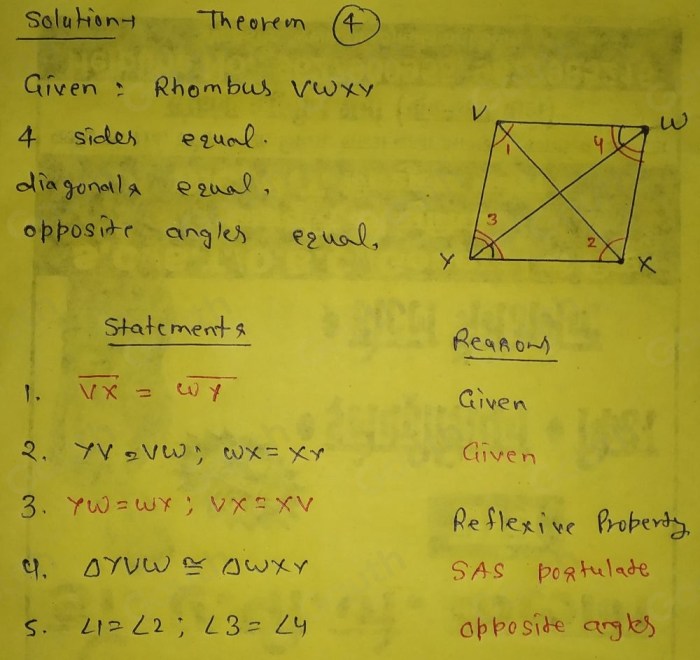 Solution→ Theorem 4
Given : Rhombus VWXY
4 sides equal.
diagonals equal,
opposite angles equal,
V W
1 4
3 2
Y X
Statements Reasons
1. VX = WY Given
2. YV = VW ; WX = XY Given
3. YW = WY ; VX = XV Reflexive Property
4. ΔYVW ≅ ΔWXY SAS postulate
5. ∠1 = ∠2 ; ∠3 = ∠4 opposite angles